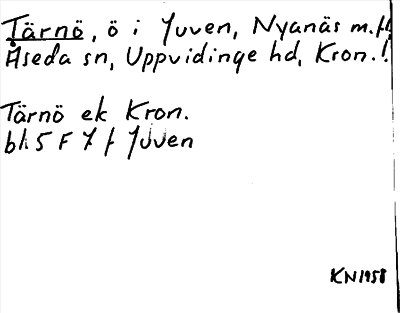 Tärnö, ö i Juven, Nyanäs m.fl.
Åseda sn, Uppvidinge hd, Kron.!
Tärnö ek Kron.
bl. 5 F 7 f Juven
KN 1958